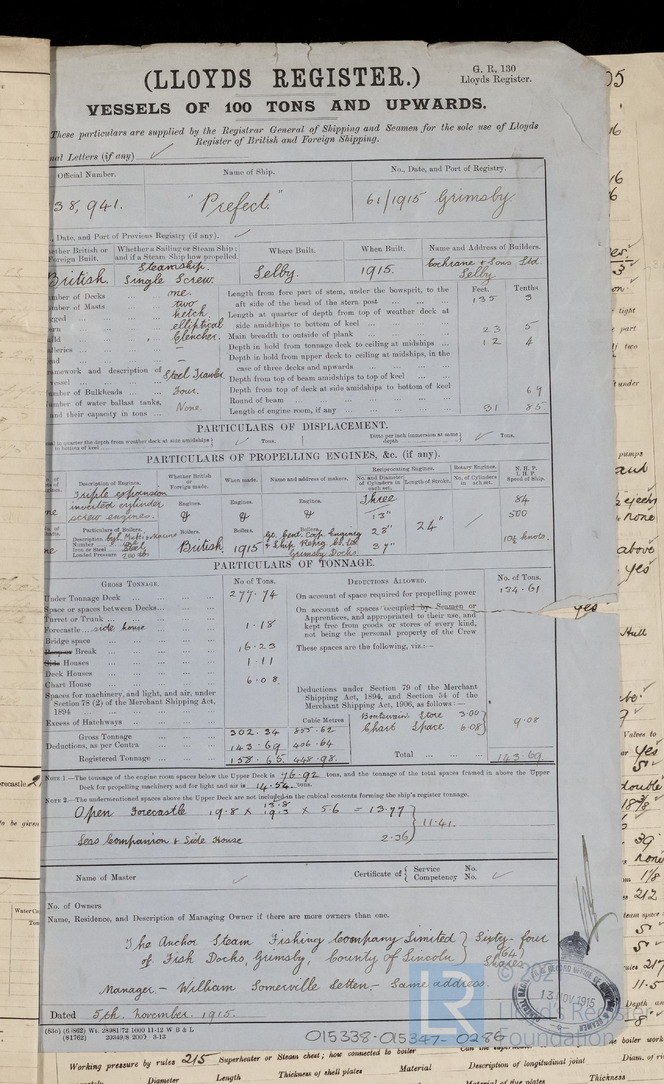 (LLOYDS REGISTER.)
G. R. 130
Lloyds Register.
VESSELS OF 100 TONS AND UPWARDS.
These particulars are supplied by the Registrar General of Shipping and Seamen for the sole use of Lloyds
Register of British and Foreign Shipping.
nal Letters (if any)
Official Number.
Name of Ship.
No., Date, and Port of Registry.
38,941.
"Prefect."
61/1915 Grimsby.
Date, and Port of Previous Registry (if any).
ether British or Foreign Built.
Whether a Sailing or Steam Ship; and if a Steam Ship how propelled.
Where Built.
When Built.
Name and Address of Builders.
British.
Steamship. Single Screw.
Selby.
1915.
Cochrane & Sons Ltd. Selby.
Feet. Tenths
mber of Decks ... one.
mber of Masts ... two
gged ... ketch
ern ... elliptical
ild ... Clencher.
lleries ... —
ad ... —
amework and description of vessel ... Steel Trawler
umber of Bulkheads ... Four.
umber of water ballast tanks, and their capacity in tons ... None.
Length from fore part of stem, under the bowsprit, to the
aft side of the head of the stern post ... 135 3
Length at quarter of depth from top of weather deck at
side amidships to bottom of keel ...
Main breadth to outside of plank ... 23 5
Depth in hold from tonnage deck to ceiling at midships ... 12 4
Depth in hold from upper deck to ceiling at midships, in the
case of three decks and upwards ...
Depth from top of beam amidships to top of keel ...
Depth from top of deck at side amidships to bottom of keel
Round of beam ...
Length of engine room, if any ... 31 85
PARTICULARS OF DISPLACEMENT.
Tons.
Ditto per inch immersion at same depth
Tons.
PARTICULARS OF PROPELLING ENGINES, &c. (if any).
Description of Engines.
Whether British or Foreign made.
When made.
Name and address of makers.
Reciprocating Engines.
No. and Diameter of Cylinders in each set.
Length of Stroke.
Rotary Engines.
No. of Cylinders in each set.
N. H. P.
I. H. P.
Speed of Ship.
Triple expansion
inverted cylinder
screw engines.
Engines.
Engines.
Engines.
Three
13"
23"
37"
24"
84
500
10½ knots.
Particulars of Boilers.
Boilers.
Boilers.
Boilers.
Iron or Steel Steel
Loaded Pressure 200 lbs
British
1915
Gt. Cent. Coop. Enginrg
& Ship Repg. Co. Ltd
Grimsby Docks.
PARTICULARS OF TONNAGE.
GROSS TONNAGE.
No. of Tons.
DEDUCTIONS ALLOWED.
No. of Tons.
Under Tonnage Deck ... 277.74
Space or spaces between Decks ...
Turret or Trunk ...
Forecastle ... side house 1.18
Bridge space
Break ... 16.23
Side Houses ... 1.11
Deck Houses ...
Chart House ... 6.08
Spaces for machinery, and light, and air, under
Section 78 (2) of the Merchant Shipping Act,
1894
Excess of Hatchways ...
On account of space required for propelling power 134.61
On account of spaces occupied by Seamen or
Apprentices, and appropriated to their use, and
kept free from goods or stores of every kind,
not being the personal property of the Crew
These spaces are the following, viz.:—
Deductions under Section 79 of the Merchant
Shipping Act, 1894, and Section 54 of the
Merchant Shipping Act, 1906, as follows:—
Boatswain's Store 3.00
Chart Space 6.08
9.08
Cubic Metres
Gross Tonnage 302.34 855.62
Deductions, as per Contra 143.69 406.64
Registered Tonnage 158.65 448.98
Total ... 143.69
NOTE 1.—The tonnage of the engine room spaces below the Upper Deck is 76.92 tons, and the tonnage of the total spaces framed in above the Upper
Deck for propelling machinery and for light and air is 14.54 tons.
NOTE 2.—The undermentioned spaces above the Upper Deck are not included in the cubical contents forming the ship's register tonnage.
13.8
Open Forecastle 19.8 x 19.3 x 5.6 = 13.77
11.41
Less Companion & Side House 2.36
Name of Master
Certificate of Service No.
Competency No.
No. of Owners
Name, Residence, and Description of Managing Owner if there are more owners than one.
The Anchor Steam Fishing Company Limited Sixty-four
of Fish Docks, Grimsby, County of Lincoln (64) Shares
Manager.— William Somerville Letten.— Same address.
Dated 5th November 1915.
13 NOV. 1915
LR
Lloyd's Register
Foundation
015338-015347-0286
Working pressure by rules 215 Superheater or Steam chest; how connected to boiler
Diameter Length Thickness of shell plates Material Description of longitudinal joint
Thickness